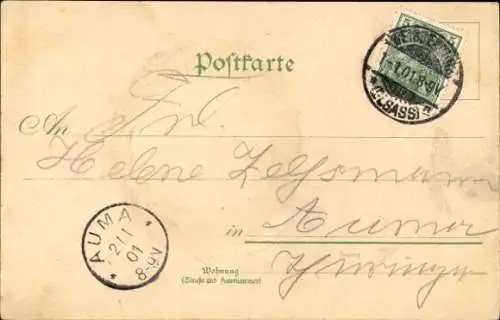 5 5
WEISSENBURG
1.1.01.8-9V
* (ELSASS) *
Postkarte
An Frl.
Helene
in Auma
Thüringen
AUMA
2/1
01
8-9V
Wohnung
(Straße und Hausnummer)